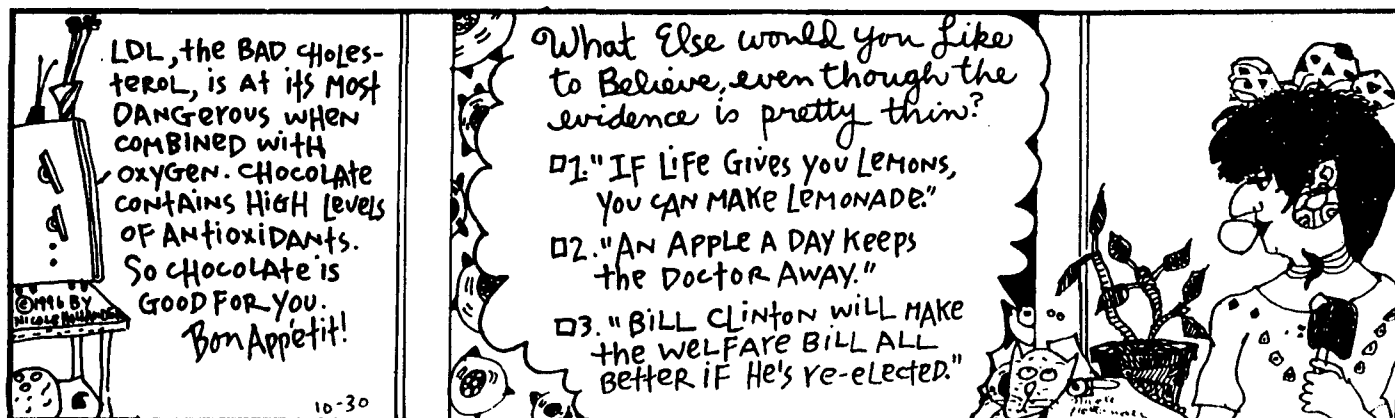 LDL, the BAD CHOLES-
teROL, is At its Most
DANGeROUS WHEN
COMBINED WITH
OXYGEN. CHOCOLATE
CONTAINS HIGH LeveLs
OF ANtioXiDANts.
So CHOCOLAte is
GOOD FOR YOU.
Bon Appétit!
©1996 BY
NICOLE HOLLANDER
10-30
What Else would you Like
to Believe, even though the
evidence is pretty thin?
□1. "IF LiFe Gives you LeMONS,
you CAN MAKE LeMONADE."
□2. "AN APPLE A DAY KeePS
the DOCTOR AWAY."
□3. "BiLL CLiNtoN WiLL MAKE
the WeLFARe BiLL ALL
BetteR iF He's re-eLected."